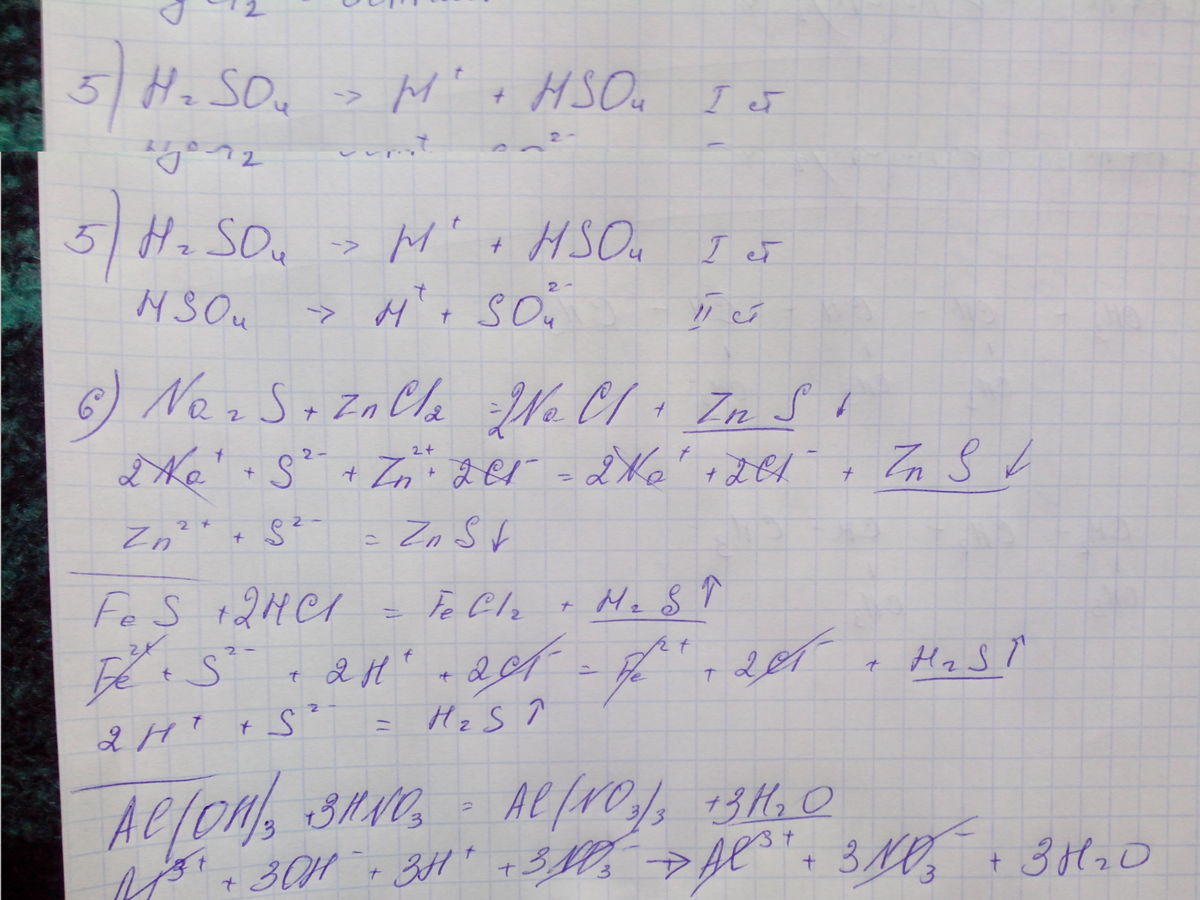 5) H₂SO₄ → H⁺ + HSO₄ I ст
5) H₂SO₄ → H⁺ + HSO₄ I ст
HSO₄ → H⁺ + SO₄²⁻ II ст
6) Na₂S + ZnCl₂ = 2NaCl + ZnS ↓
2Na⁺ + S²⁻ + Zn²⁺ + 2Cl⁻ = 2Na⁺ + 2Cl⁻ + ZnS ↓
Zn²⁺ + S²⁻ = ZnS ↓
FeS + 2HCl = FeCl₂ + H₂S ↑
Fe²⁺ + S²⁻ + 2H⁺ + 2Cl⁻ = Fe²⁺ + 2Cl⁻ + H₂S ↑
2H⁺ + S²⁻ = H₂S ↑
Al(OH)₃ + 3HNO₃ = Al(NO₃)₃ + 3H₂O
Al³⁺ + 3OH⁻ + 3H⁺ + 3NO₃⁻ → Al³⁺ + 3NO₃⁻ + 3H₂O